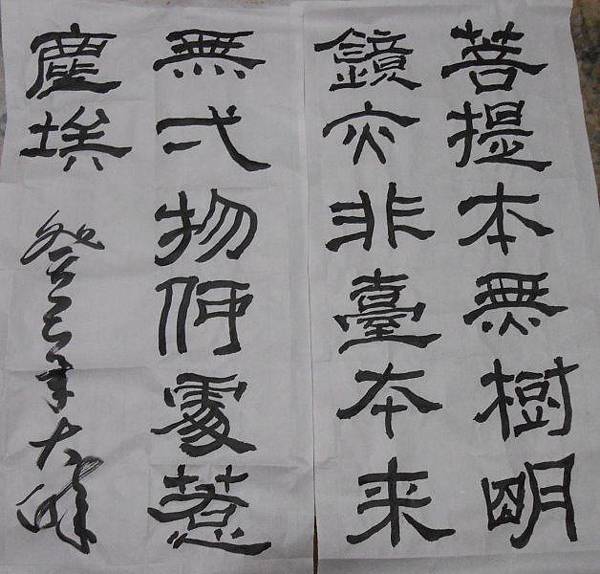 菩提本無樹明
鏡亦非臺本来
無弌物何處惹
塵埃
癸巳年大峰